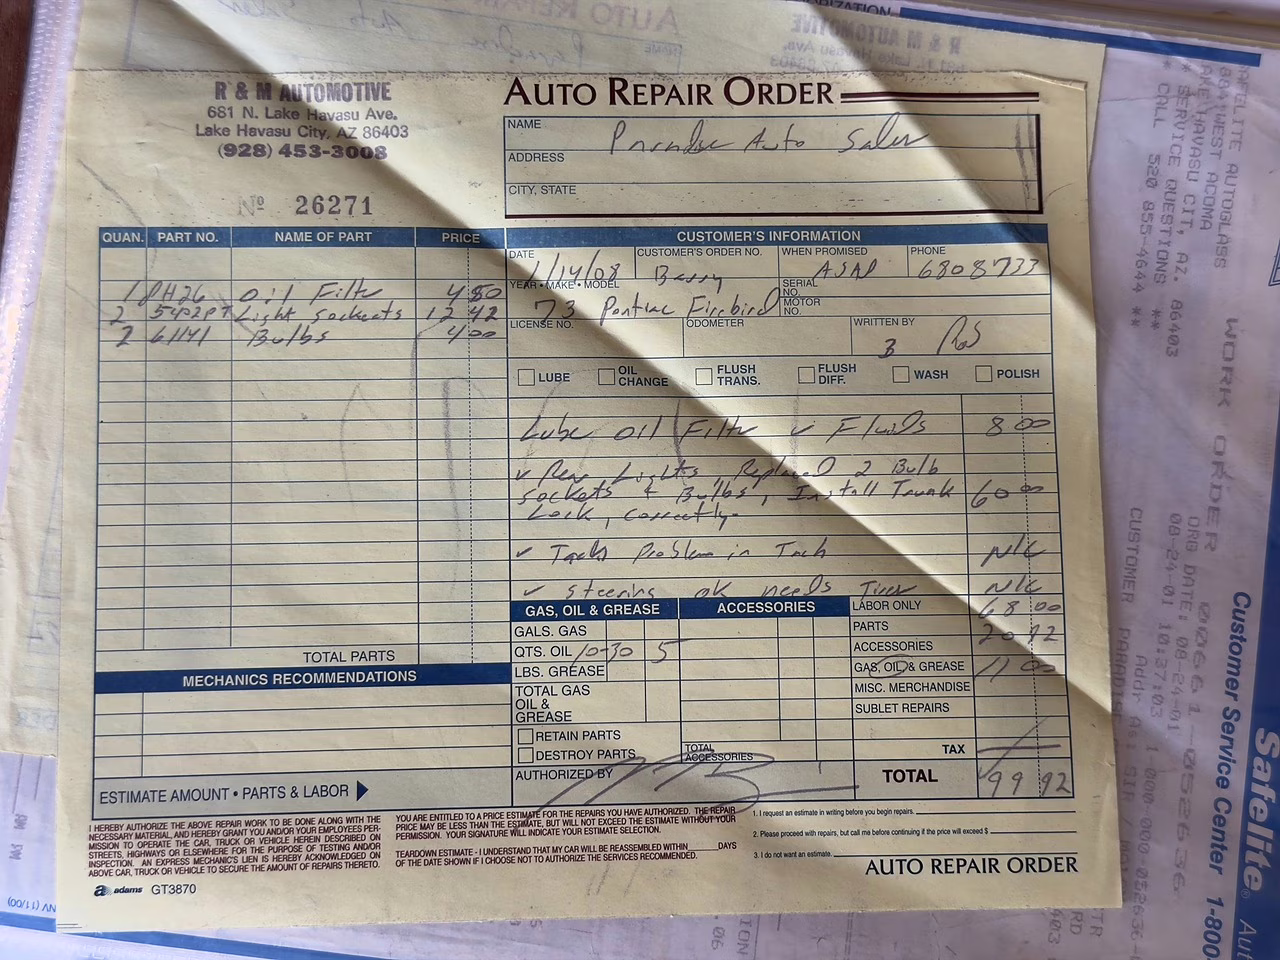 R & M AUTOMOTIVE
681 N. Lake Havasu Ave.
Lake Havasu City, AZ 86403
(928) 453-3008
Nº 26271
AUTO REPAIR ORDER
NAME Paradise Auto Sales
ADDRESS
CITY, STATE
QUAN. PART NO. NAME OF PART PRICE
1 PH26 Oil Filter 4 50
2 5422PT Light Sockets 12 42
2 61141 Bulbs 4 00
TOTAL PARTS
MECHANICS RECOMMENDATIONS
ESTIMATE AMOUNT • PARTS & LABOR
CUSTOMER'S INFORMATION
DATE 1/14/08 CUSTOMER'S ORDER NO. Barry WHEN PROMISED ASAP PHONE 6808733
YEAR • MAKE • MODEL 73 Pontiac Firebird SERIAL NO. MOTOR NO.
LICENSE NO. ODOMETER WRITTEN BY
LUBE OIL CHANGE FLUSH TRANS. FLUSH DIFF. WASH POLISH
Lube oil Filter ✓ Fluids 8 00
✓ Rear Lights Replaced 2 Bulb
Sockets & Bulbs, Install Trunk 60 00
Lock, correctly.
✓ Tach Problem in Tach N/C
✓ Steering ok needs Tires N/C
GAS, OIL & GREASE ACCESSORIES
GALS. GAS
QTS. OIL 10-30 5
LBS. GREASE
TOTAL GAS OIL & GREASE
RETAIN PARTS
DESTROY PARTS
TOTAL ACCESSORIES
AUTHORIZED BY
LABOR ONLY 68 00
PARTS 20 92
ACCESSORIES
GAS, OIL & GREASE 11 00
MISC. MERCHANDISE
SUBLET REPAIRS
TAX
TOTAL 99 92
I HEREBY AUTHORIZE THE ABOVE REPAIR WORK TO BE DONE ALONG WITH THE
NECESSARY MATERIAL AND HEREBY GRANT YOU AND/OR YOUR EMPLOYEES PER-
MISSION TO OPERATE THE CAR, TRUCK OR VEHICLE HEREIN DESCRIBED ON
STREETS, HIGHWAYS OR ELSEWHERE FOR THE PURPOSE OF TESTING AND/OR
INSPECTION. AN EXPRESS MECHANIC'S LIEN IS HEREBY ACKNOWLEDGED ON
ABOVE CAR, TRUCK OR VEHICLE TO SECURE THE AMOUNT OF REPAIRS THERETO.
YOU ARE ENTITLED TO A PRICE ESTIMATE FOR THE REPAIRS YOU HAVE AUTHORIZED. THE REPAIR
PRICE MAY BE LESS THAN THE ESTIMATE, BUT WILL NOT EXCEED THE ESTIMATE WITHOUT YOUR
PERMISSION. YOUR SIGNATURE WILL INDICATE YOUR ESTIMATE SELECTION.
TEARDOWN ESTIMATE - I UNDERSTAND THAT MY CAR WILL BE REASSEMBLED WITHIN DAYS
OF THE DATE SHOWN IF I CHOOSE NOT TO AUTHORIZE THE SERVICES RECOMMENDED.
1. I request an estimate in writing before you begin repairs.
2. Please proceed with repairs, but call me before continuing if the price will exceed $
3. I do not want an estimate.
AUTO REPAIR ORDER
adams GT3870
SAFELITE AUTOGLASS
WEST ACOMA
LAKE HAVASU CIT, AZ. 86403
* SERVICE QUESTIONS **
* CALL 520 855-4644 **
WORK ORDER
ORG DATE: 08-24-01
08-24-01 10:37:03
CUSTOMER
Customer Service Center 1-800
Safelite® Aut